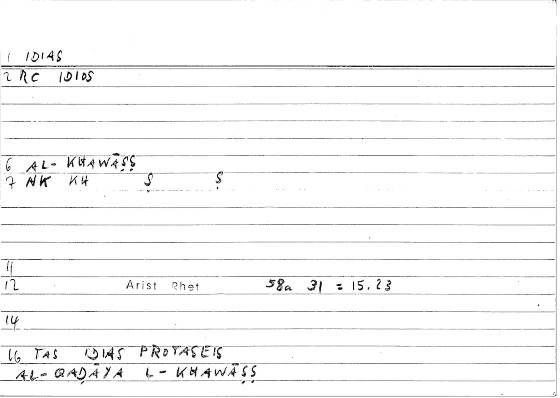 1 IDIAS
2 RC IDIOS
6 AL- KHAWĀṢṢ
7 NK KH Ṣ Ṣ
11
12 Arist Rhet 58a 31 = 15.23
14
16 TAS IDIAS PROTASEIS
AL-QAḌĀYA L-KHAWĀṢṢ